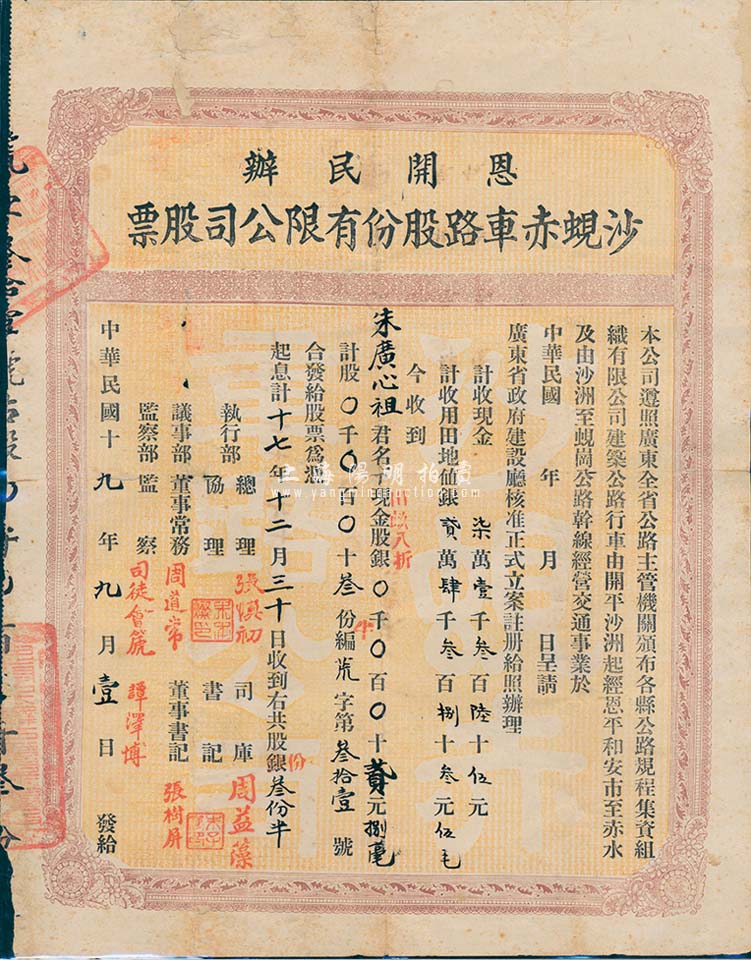 恩開民辦
沙蜆赤車路股份有限公司股票
本公司遵照廣東全省公路主管機關頒布各縣公路規程集資組
織有限公司建築公路行車由開平沙洲起經恩平和安市至赤水
及由沙洲至蜆崗公路幹線經營交通事業於
中華民國 年 月 日呈請
廣東省政府建設廳核准正式立案註册給照辦理
計收現金 柒萬壹千叁百陸十伍元
計收用田地值銀貳萬肆千叁百捌十叁元伍毛
今收到
朱廣心祖君名 現金股銀〇千〇百〇十貳元捌毫
田畝八折
計股〇千〇百〇十叁份半編 字第叁拾壹號
合發給股票爲憑
起息計十七年十二月三十日收到右共股銀份叁份半
執行部 總理 張慎初 司庫 周益藻
協理 書記
議事部 董事常務 周道常 董事書記 張樹屏
監察部 監察 司徒會箎 譚澤博
中華民國十九年九月壹日 發給
上海陽明拍賣
www.yangmingauction.com